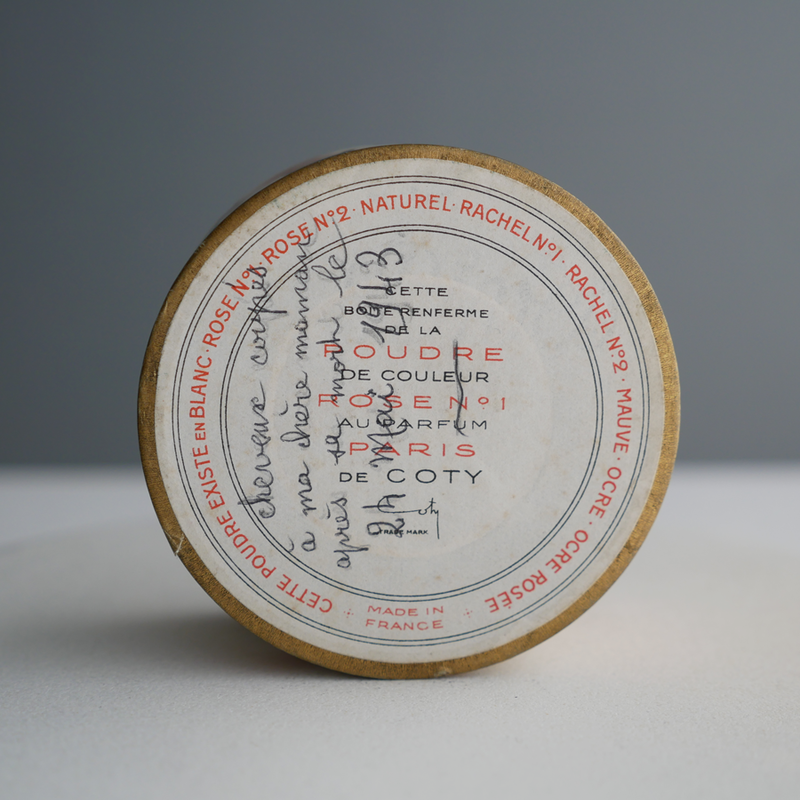 CETTE POUDRE EXISTE EN BLANC · ROSE N°1 · ROSE N°2 · NATUREL · RACHEL N°1 · RACHEL N°2 · MAUVE · OCRE · OCRE ROSÉE
CETTE
BOITE RENFERME
DE LA
POUDRE
DE COULEUR
ROSE N°1
AU PARFUM
PARIS
DE COTY
Coty
TRADE MARK
MADE IN
FRANCE
cheveux coupés
à ma chère maman
après sa mort le
24 Mai 1943